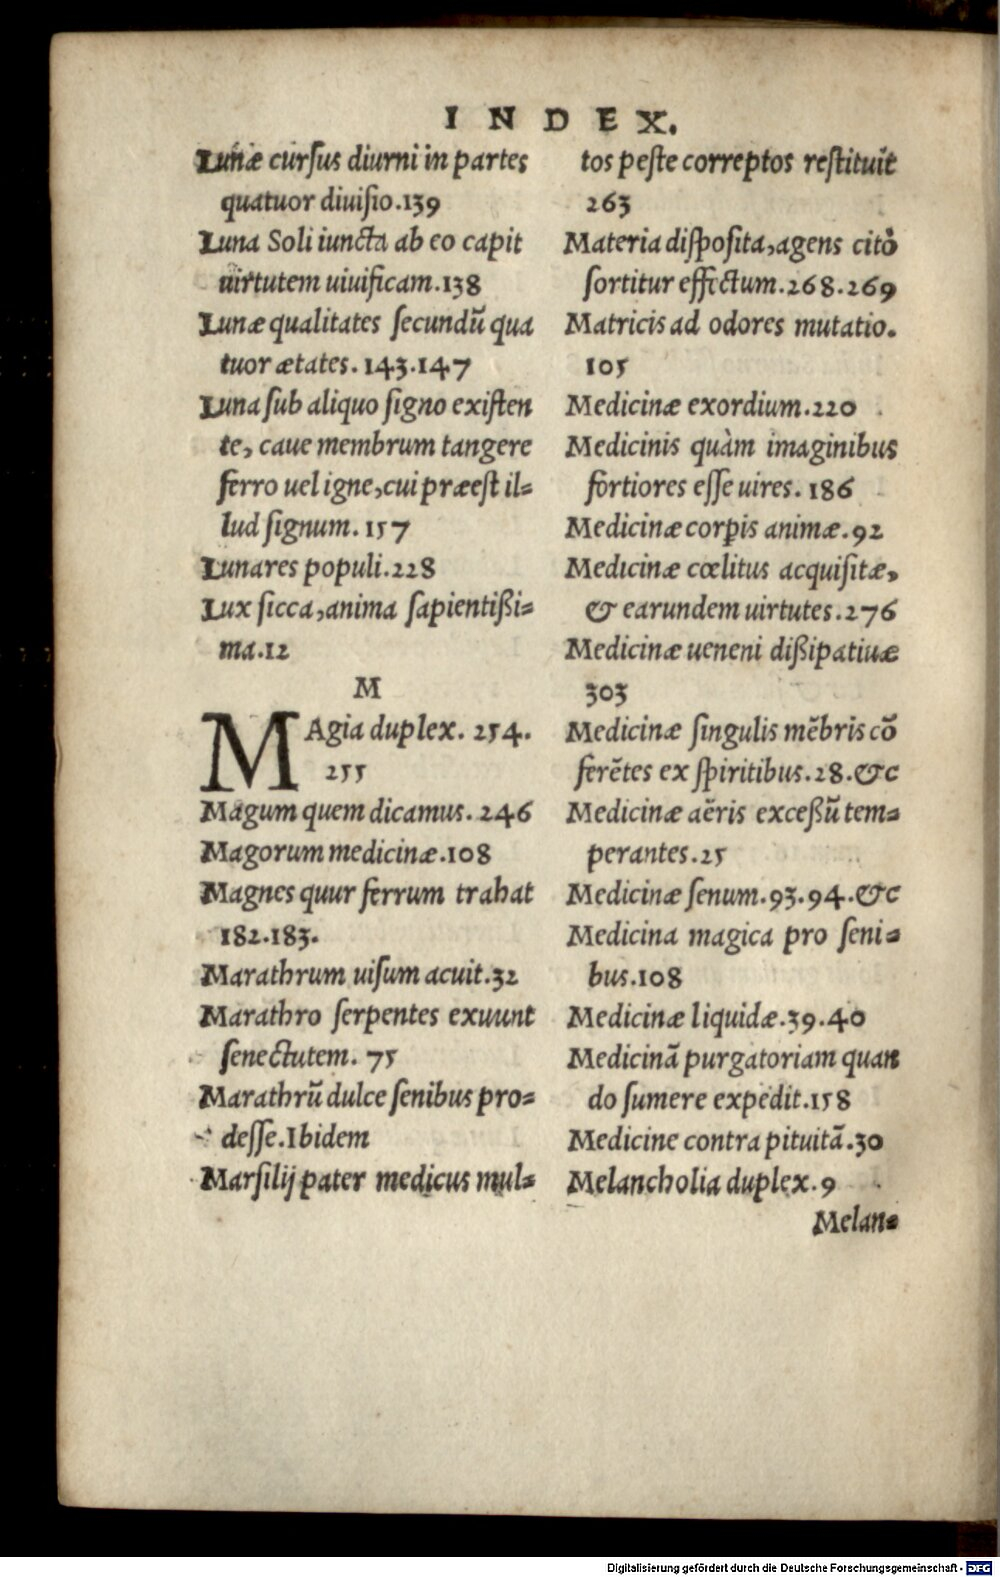 INDEX.
Lunæ cursus diurni in partes
quatuor diuisio.139
Luna Soli iuncta ab eo capit
uirtutem uiuificam.138
Lunæ qualitates secundũ qua
tuor ætates. 143.147
Luna sub aliquo signo existen
te, caue membrum tangere
ferro uel igne, cui præest il=
lud signum. 157
Lunares populi.228
Lux sicca, anima sapientißi=
ma.12
M
MAgia duplex. 254.
255
Magum quem dicamus. 246
Magorum medicinæ.108
Magnes quur ferrum trahat
182.183.
Marathrum uisum acuit.32
Marathro serpentes exuunt
senectutem. 75
Marathrũ dulce senibus pro=
desse. Ibidem
Marsilij pater medicus mul=
tos peste correptos restituit
263
Materia disposita, agens citò
sortitur effectum.268.269
Matricis ad odores mutatio.
105
Medicinæ exordium.220
Medicinis quàm imaginibus
fortiores esse uires. 186
Medicinæ corpis animæ.92
Medicinæ cœlitus acquisitæ,
& earundem uirtutes.276
Medicinæ ueneni dißipatiuæ
303
Medicinæ singulis mẽbris cõ
ferẽtes ex spiritibus.28.&c
Medicinæ aëris exceßũ tem=
perantes.25
Medicinæ senum.93.94.&c
Medicina magica pro seni=
bus.108
Medicinæ liquidæ.39.40
Medicinã purgatoriam quan
do sumere expedit.158
Medicine contra pituitã.30
Melancholia duplex.9
Melan=
Digitalisierung gefördert durch die Deutsche Forschungsgemeinschaft - DFG